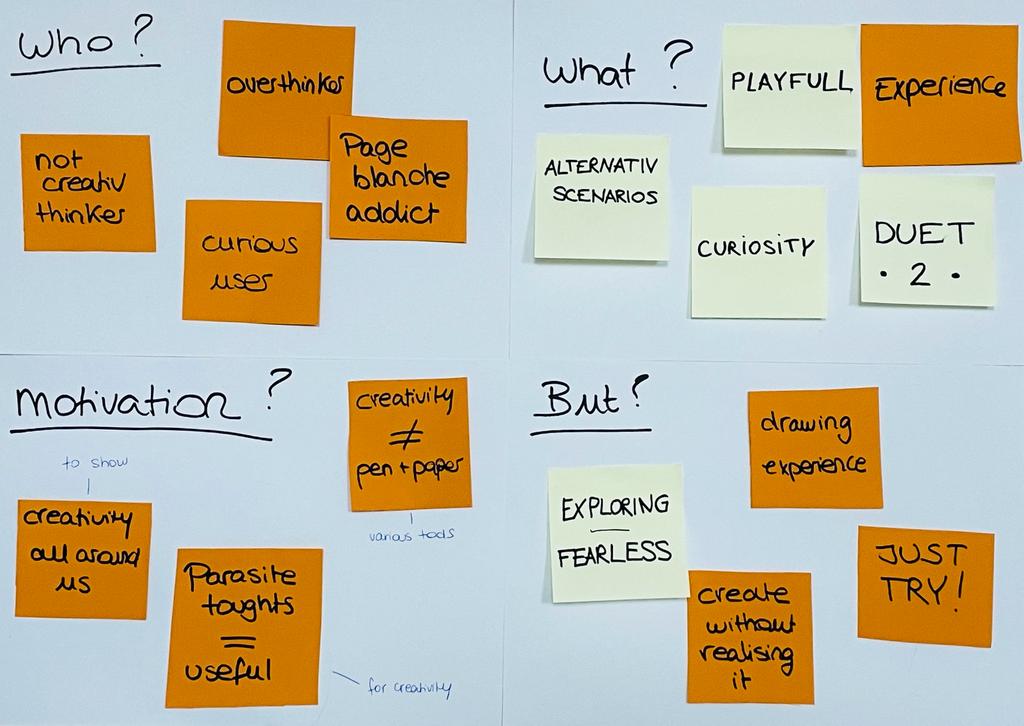 Who?
overthinker
not
creativ
thinker
Page
blanche
addict
curious
user
What?
PLAYFULL
Experience
ALTERNATIV
SCENARIOS
CURIOSITY
DUET
• 2 •
Motivation?
creativity
≠
pen + paper
various tools
to show
creativity
all around
us
Parasite
toughts
=
useful
for creativity
But?
drawing
experience
EXPLORING
FEARLESS
JUST
TRY!
create
without
realising
it